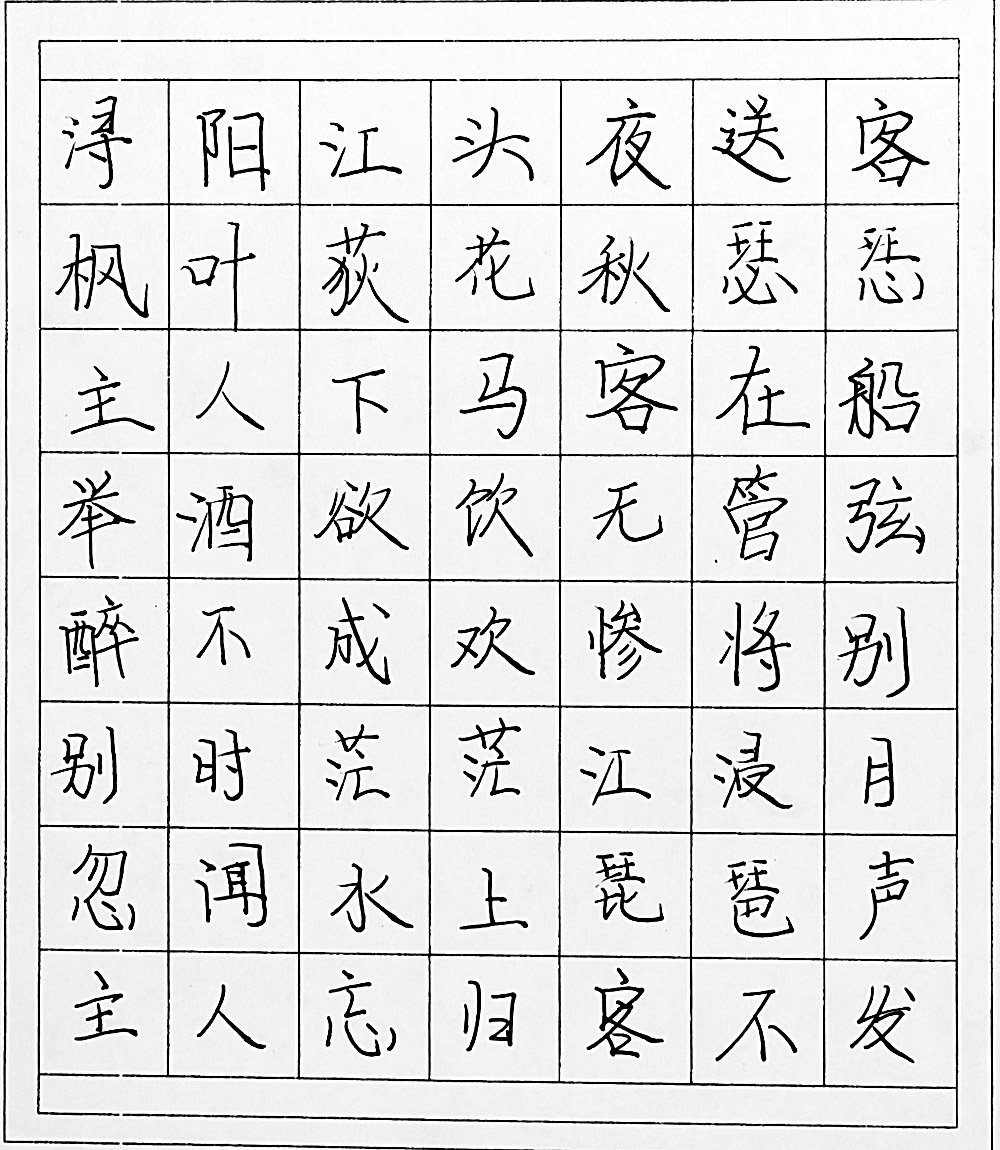 浔阳江头夜送客
枫叶荻花秋瑟瑟
主人下马客在船
举酒欲饮无管弦
醉不成欢惨将别
别时茫茫江浸月
忽闻水上琵琶声
主人忘归客不发